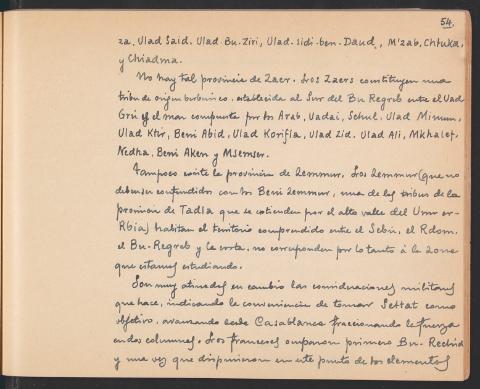 54.
za, Ulad Said, Ulad-Bu-Ziri, Ulad-sidi-ben-Daud, M'zab, Chtuka,
y Chiadma.
No hay tal provincia de Zaer. Los Zaers constituyen una
tribu de origen berberisco, establecida al Sur del Bu Regreb entre el Uad
Grú y el mar compuesta por los Arab, Uadai, Sehul, Ulad Mimun,
Ulad Ktir, Beni Abid, Ulad Korifla, Ulad Zid, Ulad Ali, Mkhalef,
Nedha, Beni Aken y Msemser.
Tampoco existe la provincia de Zemmur. Los Zemmur (que no
deben ser confundidos con los Beni Zemmur, una de las tribus de la
provincia de Tadla que se extienden por el alto valle del Umm er-
Rbia) habitan el territorio comprendido entre el Sebú, el Rdom,
el Bu-Regreb y la costa, no corresponden por lo tanto á la zona
que estamos estudiando.
Son muy atinadas en cambio las consideraciones militares
que hace, indicando la conveniencia de tomar Settat como
objetivo, avanzando desde Casablanca fraccionando la fuerza
en dos columnas. Los franceses ocuparon primero Bu-Rechid
y una vez que dispusieron en este punto de los elementos